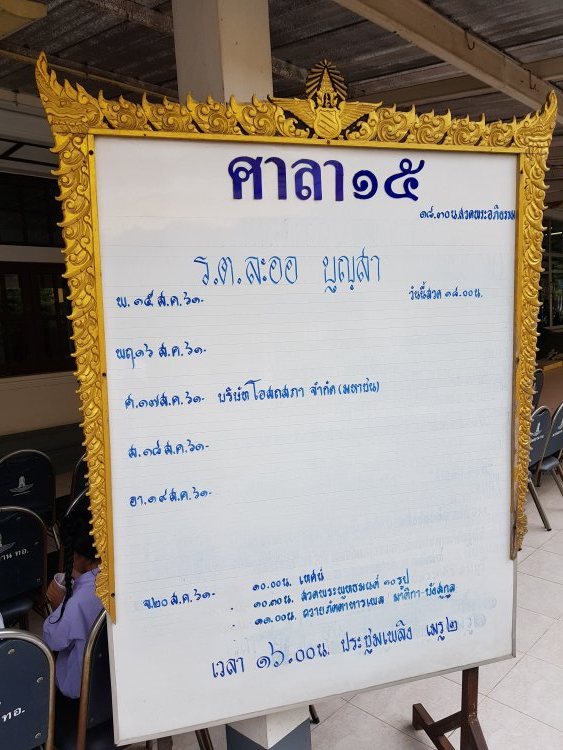 ศาลา ๑๕
๑๘.๓๐น.สวดพระอภิธรรม
ร.ต. ละออ บุญสา
พ.๑๕ ส.ค.๖๑- วันนี้สวด ๑๘.๐๐น.
พฤ๑๖ ส.ค.๖๑-
ศ.๑๗ส.ค.๖๑- บริษัทโอสถสภา จำกัด (มหาชน)
ส.๑๘ ส.ค.๖๑-
อา.๑๙ ส.ค.๖๑-
จ๒๐ ส.ค.๖๑- ๑๐.๐๐น. เทศน์
" ๑๐.๓๐น. สวดพระพุทธมนต์ ๑๐ รูป
" ๑๑.๐๐น. ถวายภัตตาหารเพล มาติกา-บังสุกุล
เวลา ๑๖.๐๐น. ประชุมเพลิง เมรุ ๒
ทอ.